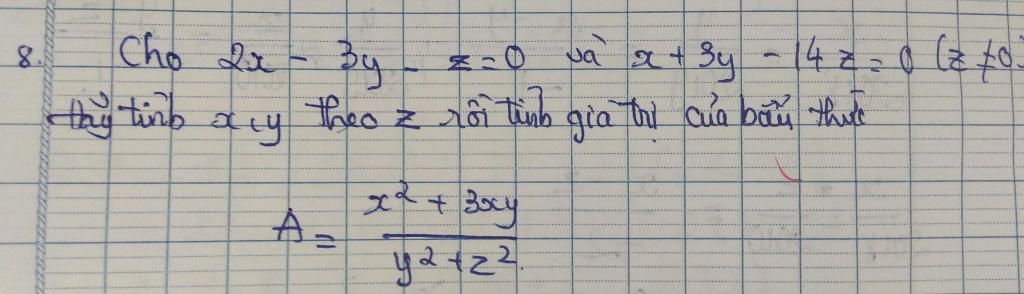 8. Cho 2x - 3y - z = 0 và x + 3y - 14z = 0 (z ≠ 0)
Hãy tính x, y theo z rồi tính giá trị của biểu thức
A = \frac{x^2 + 3xy}{y^2 + z^2}